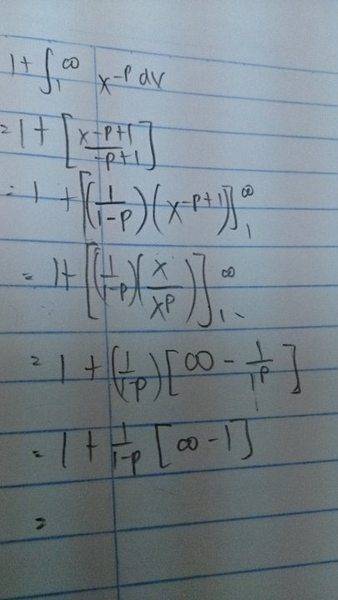 1 + ∫₁^∞ x^-p dx
= 1 + [x^-p+1 / -p+1]
= 1 + [(1/1-p)(x^-p+1)]₁^∞
= 1 + [(1/1-p)(x/x^p)]₁^∞
= 1 + (1/1-p)[∞ - 1/1^p]
= 1 + 1/1-p [∞ - 1]
=